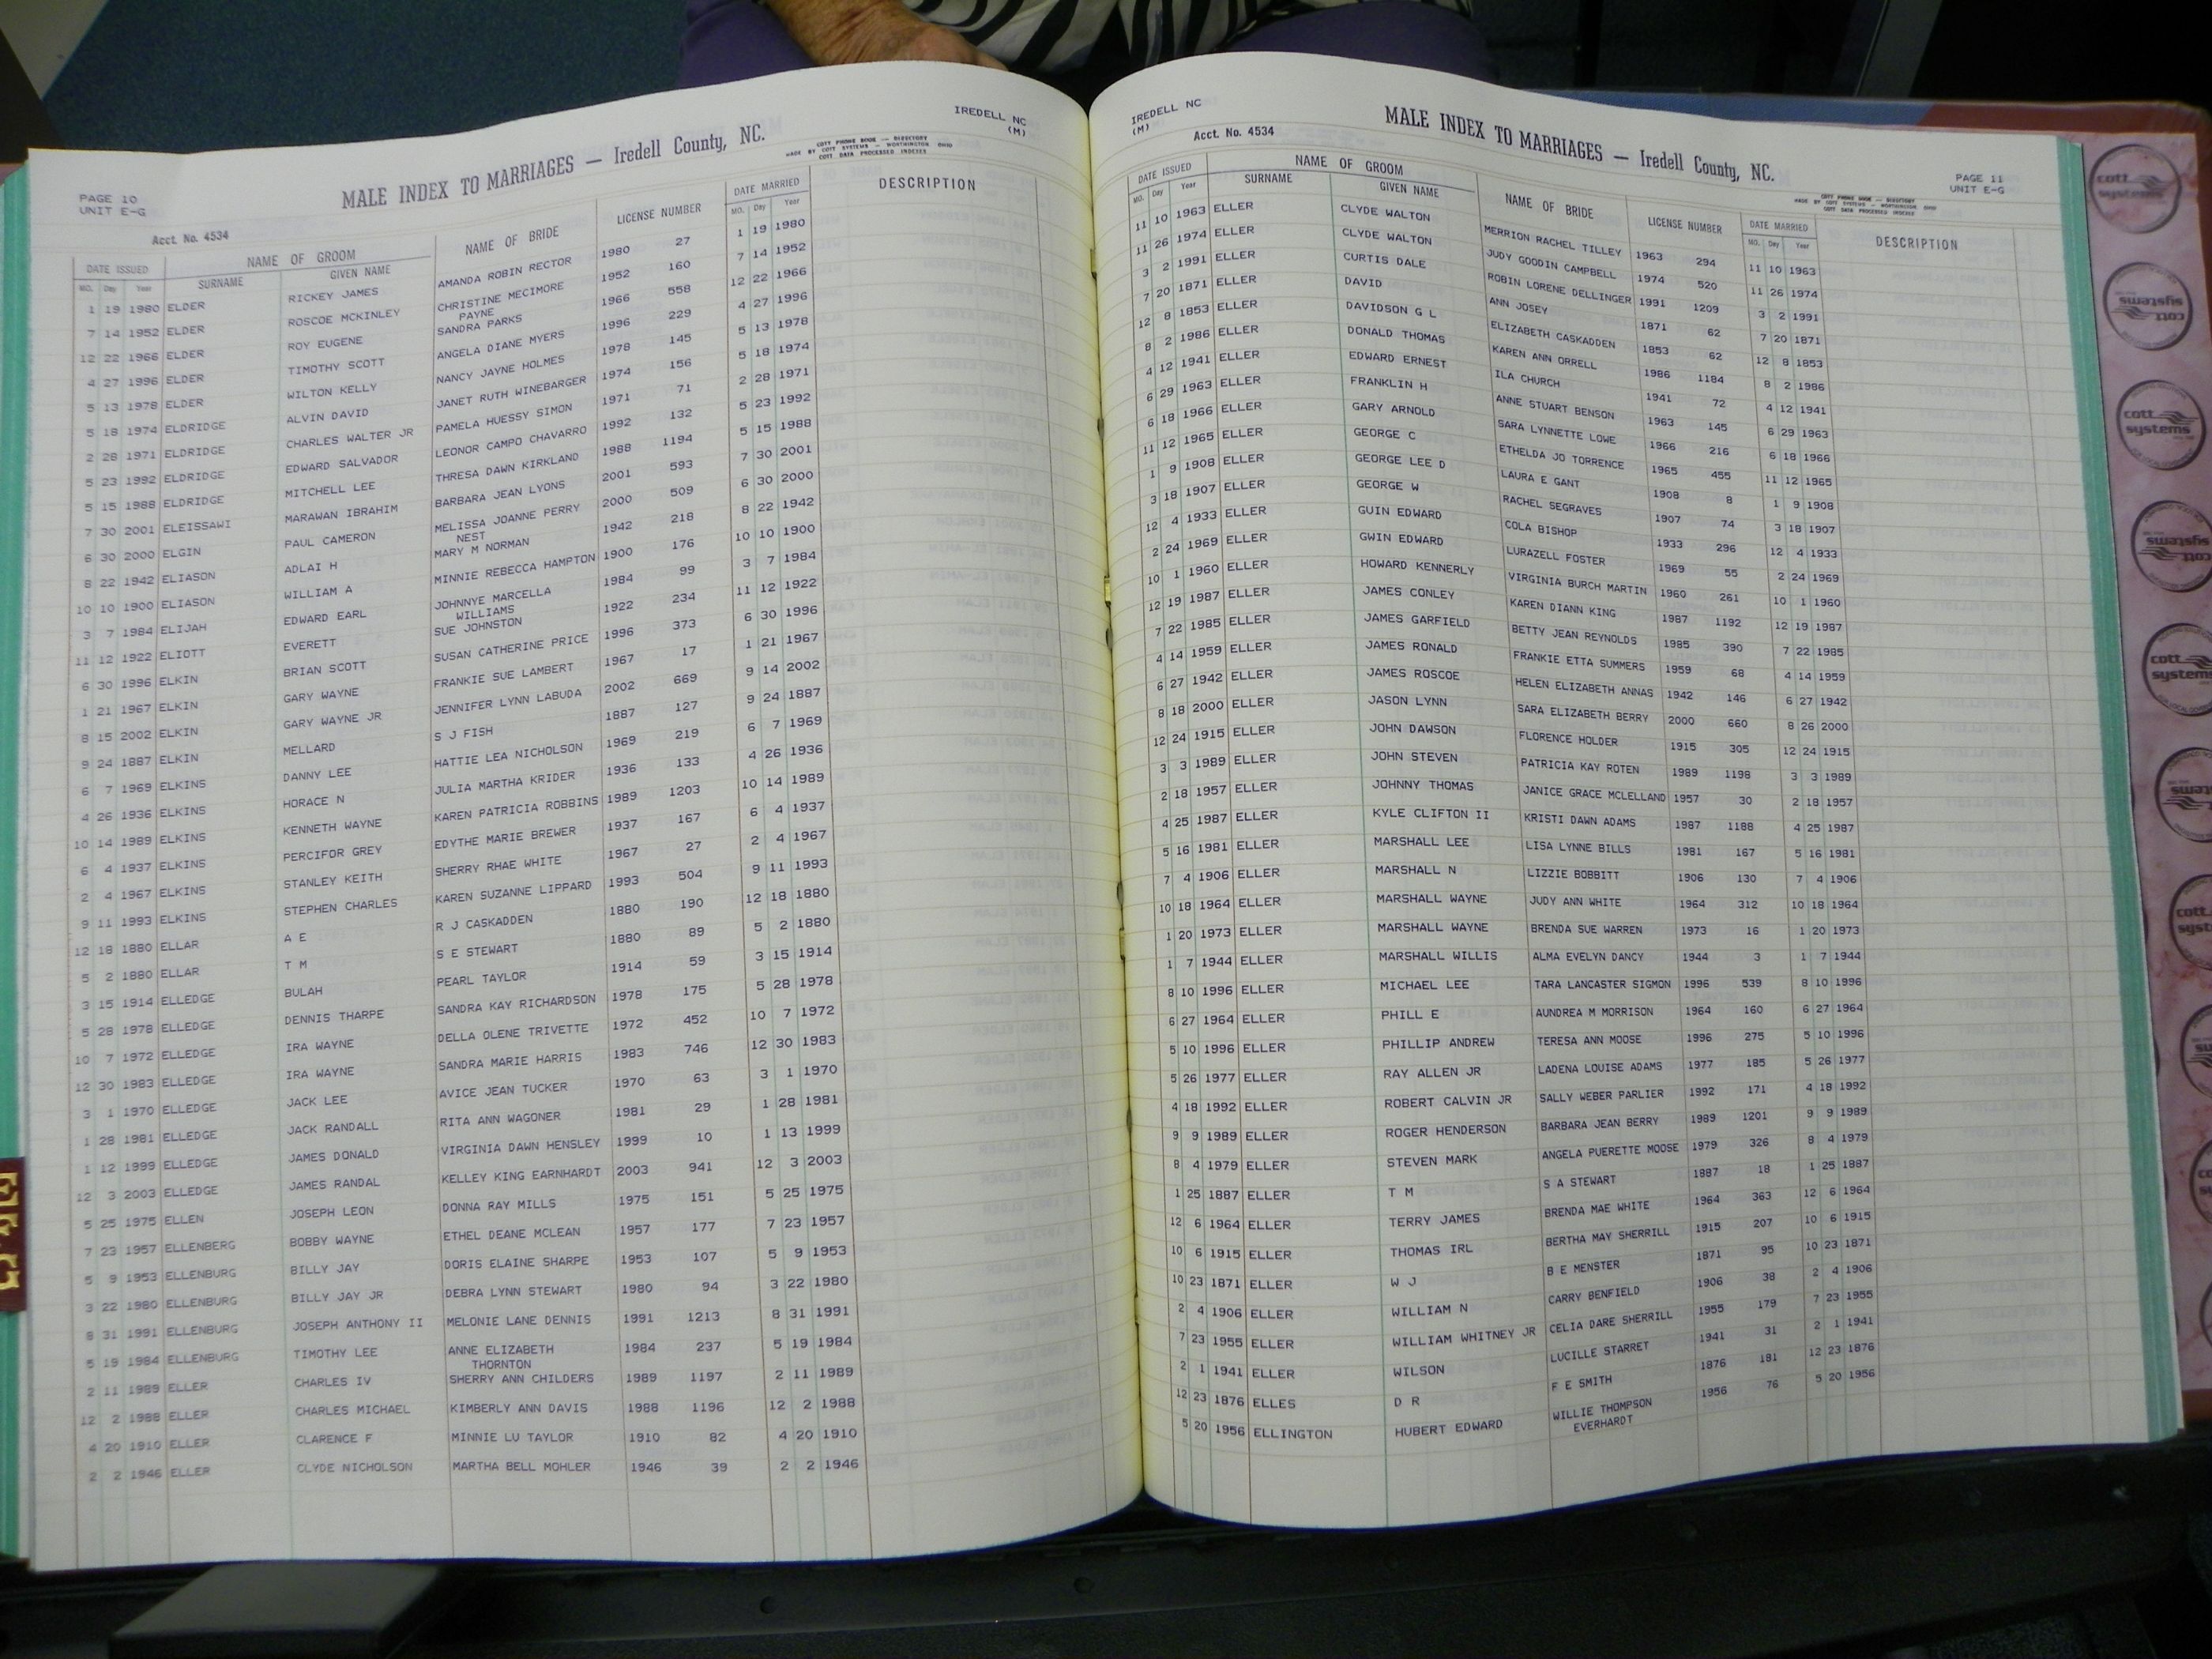 IREDELL NC
(M)
MALE INDEX TO MARRIAGES — Iredell County, NC.
COTT PHONE BOOK — DIRECTORY
MADE BY COTT SYSTEMS — WORTHINGTON OHIO
COTT DATA PROCESSED INDEXES
PAGE 10
UNIT E-G
Acct. No. 4534
DATE ISSUED NAME OF GROOM NAME OF BRIDE LICENSE NUMBER DATE MARRIED DESCRIPTION
MO. Day Year SURNAME GIVEN NAME MO. Day Year
1 19 1980 ELDER RICKEY JAMES AMANDA ROBIN RECTOR 1980 27 1 19 1980
7 14 1952 ELDER ROSCOE MCKINLEY CHRISTINE MECIMORE 1952 160 7 14 1952
PAYNE
12 22 1966 ELDER ROY EUGENE SANDRA PARKS 1966 558 12 22 1966
4 27 1996 ELDER TIMOTHY SCOTT ANGELA DIANE MYERS 1996 229 4 27 1996
5 13 1978 ELDER WILTON KELLY NANCY JAYNE HOLMES 1978 145 5 13 1978
5 18 1974 ELDRIDGE ALVIN DAVID JANET RUTH WINEBARGER 1974 156 5 18 1974
2 28 1971 ELDRIDGE CHARLES WALTER JR PAMELA HUESSY SIMON 1971 71 2 28 1971
5 23 1992 ELDRIDGE EDWARD SALVADOR LEONOR CAMPO CHAVARRO 1992 132 5 23 1992
5 15 1988 ELDRIDGE MITCHELL LEE THRESA DAWN KIRKLAND 1988 1194 5 15 1988
7 30 2001 ELEISSAWI MARAWAN IBRAHIM BARBARA JEAN LYONS 2001 593 7 30 2001
6 30 2000 ELGIN PAUL CAMERON MELISSA JOANNE PERRY 2000 509 6 30 2000
NEST
8 22 1942 ELIASON ADLAI H MARY M NORMAN 1942 218 8 22 1942
10 10 1900 ELIASON WILLIAM A MINNIE REBECCA HAMPTON 1900 176 10 10 1900
3 7 1984 ELIJAH EDWARD EARL JOHNNYE MARCELLA 1984 99 3 7 1984
WILLIAMS
11 12 1922 ELIOTT EVERETT SUE JOHNSTON 1922 234 11 12 1922
6 30 1996 ELKIN BRIAN SCOTT SUSAN CATHERINE PRICE 1996 373 6 30 1996
1 21 1967 ELKIN GARY WAYNE FRANKIE SUE LAMBERT 1967 17 1 21 1967
8 15 2002 ELKIN GARY WAYNE JR JENNIFER LYNN LABUDA 2002 669 9 14 2002
9 24 1887 ELKIN MELLARD S J FISH 1887 127 9 24 1887
6 7 1969 ELKINS DANNY LEE HATTIE LEA NICHOLSON 1969 219 6 7 1969
4 26 1936 ELKINS HORACE N JULIA MARTHA KRIDER 1936 133 4 26 1936
10 14 1989 ELKINS KENNETH WAYNE KAREN PATRICIA ROBBINS 1989 1203 10 14 1989
6 4 1937 ELKINS PERCIFOR GREY EDYTHE MARIE BREWER 1937 167 6 4 1937
2 4 1967 ELKINS STANLEY KEITH SHERRY RHAE WHITE 1967 27 2 4 1967
9 11 1993 ELKINS STEPHEN CHARLES KAREN SUZANNE LIPPARD 1993 504 9 11 1993
12 18 1880 ELLAR A E R J CASKADDEN 1880 190 12 18 1880
5 2 1880 ELLAR T M S E STEWART 1880 89 5 2 1880
3 15 1914 ELLEDGE BULAH PEARL TAYLOR 1914 59 3 15 1914
5 28 1978 ELLEDGE DENNIS THARPE SANDRA KAY RICHARDSON 1978 175 5 28 1978
10 7 1972 ELLEDGE IRA WAYNE DELLA OLENE TRIVETTE 1972 452 10 7 1972
12 30 1983 ELLEDGE IRA WAYNE SANDRA MARIE HARRIS 1983 746 12 30 1983
3 1 1970 ELLEDGE JACK LEE AVICE JEAN TUCKER 1970 63 3 1 1970
1 28 1981 ELLEDGE JACK RANDALL RITA ANN WAGONER 1981 29 1 28 1981
1 12 1999 ELLEDGE JAMES DONALD VIRGINIA DAWN HENSLEY 1999 10 1 13 1999
12 3 2003 ELLEDGE JAMES RANDAL KELLEY KING EARNHARDT 2003 941 12 3 2003
5 25 1975 ELLEN JOSEPH LEON DONNA RAY MILLS 1975 151 5 25 1975
7 23 1957 ELLENBERG BOBBY WAYNE ETHEL DEANE MCLEAN 1957 177 7 23 1957
5 9 1953 ELLENBURG BILLY JAY DORIS ELAINE SHARPE 1953 107 5 9 1953
3 22 1980 ELLENBURG BILLY JAY JR DEBRA LYNN STEWART 1980 94 3 22 1980
8 31 1991 ELLENBURG JOSEPH ANTHONY II MELONIE LANE DENNIS 1991 1213 8 31 1991
5 19 1984 ELLENBURG TIMOTHY LEE ANNE ELIZABETH 1984 237 5 19 1984
THORNTON
2 11 1989 ELLER CHARLES IV SHERRY ANN CHILDERS 1989 1197 2 11 1989
12 2 1988 ELLER CHARLES MICHAEL KIMBERLY ANN DAVIS 1988 1196 12 2 1988
4 20 1910 ELLER CLARENCE F MINNIE LU TAYLOR 1910 82 4 20 1910
2 2 1946 ELLER CLYDE NICHOLSON MARTHA BELL MOHLER 1946 39 2 2 1946
IREDELL NC
(M)
Acct. No. 4534
MALE INDEX TO MARRIAGES — Iredell County, NC.
COTT PHONE BOOK — DIRECTORY
MADE BY COTT SYSTEMS — WORTHINGTON OHIO
COTT DATA PROCESSED INDEXES
PAGE 11
UNIT E-G
DATE ISSUED NAME OF GROOM NAME OF BRIDE LICENSE NUMBER DATE MARRIED DESCRIPTION
MO. Day Year SURNAME GIVEN NAME MO. Day Year
11 10 1963 ELLER CLYDE WALTON MERRION RACHEL TILLEY 1963 294 11 10 1963
11 26 1974 ELLER CLYDE WALTON JUDY GOODIN CAMPBELL 1974 520 11 26 1974
3 2 1991 ELLER CURTIS DALE ROBIN LORENE DELLINGER 1991 1209 3 2 1991
7 20 1871 ELLER DAVID ANN JOSEY 1871 62 7 20 1871
12 8 1853 ELLER DAVIDSON G L ELIZABETH CASKADDEN 1853 62 12 8 1853
8 2 1986 ELLER DONALD THOMAS KAREN ANN ORRELL 1986 1184 8 2 1986
4 12 1941 ELLER EDWARD ERNEST ILA CHURCH 1941 72 4 12 1941
6 29 1963 ELLER FRANKLIN H ANNE STUART BENSON 1963 145 6 29 1963
6 18 1966 ELLER GARY ARNOLD SARA LYNNETTE LOWE 1966 216 6 18 1966
11 12 1965 ELLER GEORGE C ETHELDA JO TORRENCE 1965 455 11 12 1965
1 9 1908 ELLER GEORGE LEE D LAURA E GANT 1908 8 1 9 1908
3 18 1907 ELLER GEORGE W RACHEL SEGRAVES 1907 74 3 18 1907
12 4 1933 ELLER GUIN EDWARD COLA BISHOP 1933 296 12 4 1933
2 24 1969 ELLER GWIN EDWARD LURAZELL FOSTER 1969 55 2 24 1969
10 1 1960 ELLER HOWARD KENNERLY VIRGINIA BURCH MARTIN 1960 261 10 1 1960
12 19 1987 ELLER JAMES CONLEY KAREN DIANN KING 1987 1192 12 19 1987
7 22 1985 ELLER JAMES GARFIELD BETTY JEAN REYNOLDS 1985 390 7 22 1985
4 14 1959 ELLER JAMES RONALD FRANKIE ETTA SUMMERS 1959 68 4 14 1959
6 27 1942 ELLER JAMES ROSCOE HELEN ELIZABETH ANNAS 1942 146 6 27 1942
8 18 2000 ELLER JASON LYNN SARA ELIZABETH BERRY 2000 660 8 26 2000
12 24 1915 ELLER JOHN DAWSON FLORENCE HOLDER 1915 305 12 24 1915
3 3 1989 ELLER JOHN STEVEN PATRICIA KAY ROTEN 1989 1198 3 3 1989
2 18 1957 ELLER JOHNNY THOMAS JANICE GRACE MCLELLAND 1957 30 2 18 1957
4 25 1987 ELLER KYLE CLIFTON II KRISTI DAWN ADAMS 1987 1188 4 25 1987
5 16 1981 ELLER MARSHALL LEE LISA LYNNE BILLS 1981 167 5 16 1981
7 4 1906 ELLER MARSHALL N LIZZIE BOBBITT 1906 130 7 4 1906
10 18 1964 ELLER MARSHALL WAYNE JUDY ANN WHITE 1964 312 10 18 1964
1 20 1973 ELLER MARSHALL WAYNE BRENDA SUE WARREN 1973 16 1 20 1973
1 7 1944 ELLER MARSHALL WILLIS ALMA EVELYN DANCY 1944 3 1 7 1944
8 10 1996 ELLER MICHAEL LEE TARA LANCASTER SIGMON 1996 539 8 10 1996
6 27 1964 ELLER PHILL E AUNDREA M MORRISON 1964 160 6 27 1964
5 10 1996 ELLER PHILLIP ANDREW TERESA ANN MOOSE 1996 275 5 10 1996
5 26 1977 ELLER RAY ALLEN JR LADENA LOUISE ADAMS 1977 185 5 26 1977
4 18 1992 ELLER ROBERT CALVIN JR SALLY WEBER PARLIER 1992 171 4 18 1992
9 9 1989 ELLER ROGER HENDERSON BARBARA JEAN BERRY 1989 1201 9 9 1989
8 4 1979 ELLER STEVEN MARK ANGELA PUERETTE MOOSE 1979 326 8 4 1979
1 25 1887 ELLER T M S A STEWART 1887 18 1 25 1887
12 6 1964 ELLER TERRY JAMES BRENDA MAE WHITE 1964 363 12 6 1964
10 6 1915 ELLER THOMAS IRL BERTHA MAY SHERRILL 1915 207 10 6 1915
10 23 1871 ELLER W J B E MENSTER 1871 95 10 23 1871
2 4 1906 ELLER WILLIAM N CARRY BENFIELD 1906 38 2 4 1906
7 23 1955 ELLER WILLIAM WHITNEY JR CELIA DARE SHERRILL 1955 179 7 23 1955
2 1 1941 ELLER WILSON LUCILLE STARRET 1941 31 2 1 1941
12 23 1876 ELLES D R F E SMITH 1876 181 12 23 1876
5 20 1956 ELLINGTON HUBERT EDWARD WILLIE THOMPSON 1956 76 5 20 1956
EVERHARDT
cott
systems
cott
systems
cott
systems
cott
systems
cott
systems